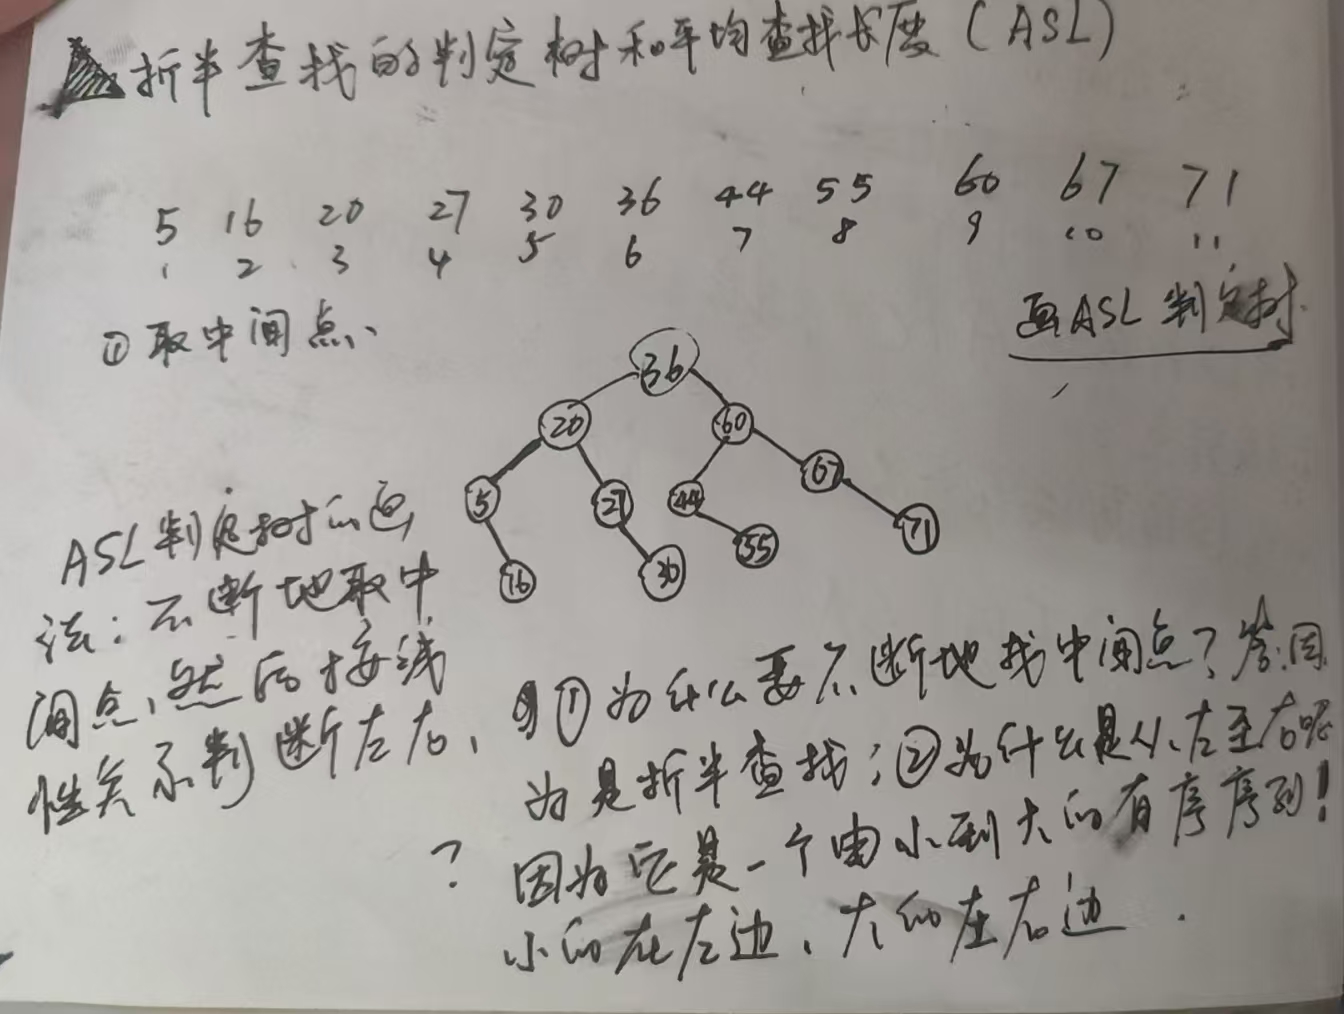 折半查找的判定树和平均查找长度(ASL)
5 16 20 27 30 36 44 55 60 67 71
1 2 3 4 5 6 7 8 9 10 11
①取中间点、
画ASL判定树
36
20 60
5 27 44 67
16 30 55 71
ASL判定树的画
法:不断地取中
间点,然后按线
性关系判断左右、
①为什么要不断地找中间点?答:因
为是折半查找;②为什么是从左至右呢
?因为它是一个由小到大的有序序列!
小的在左边、大的在右边.